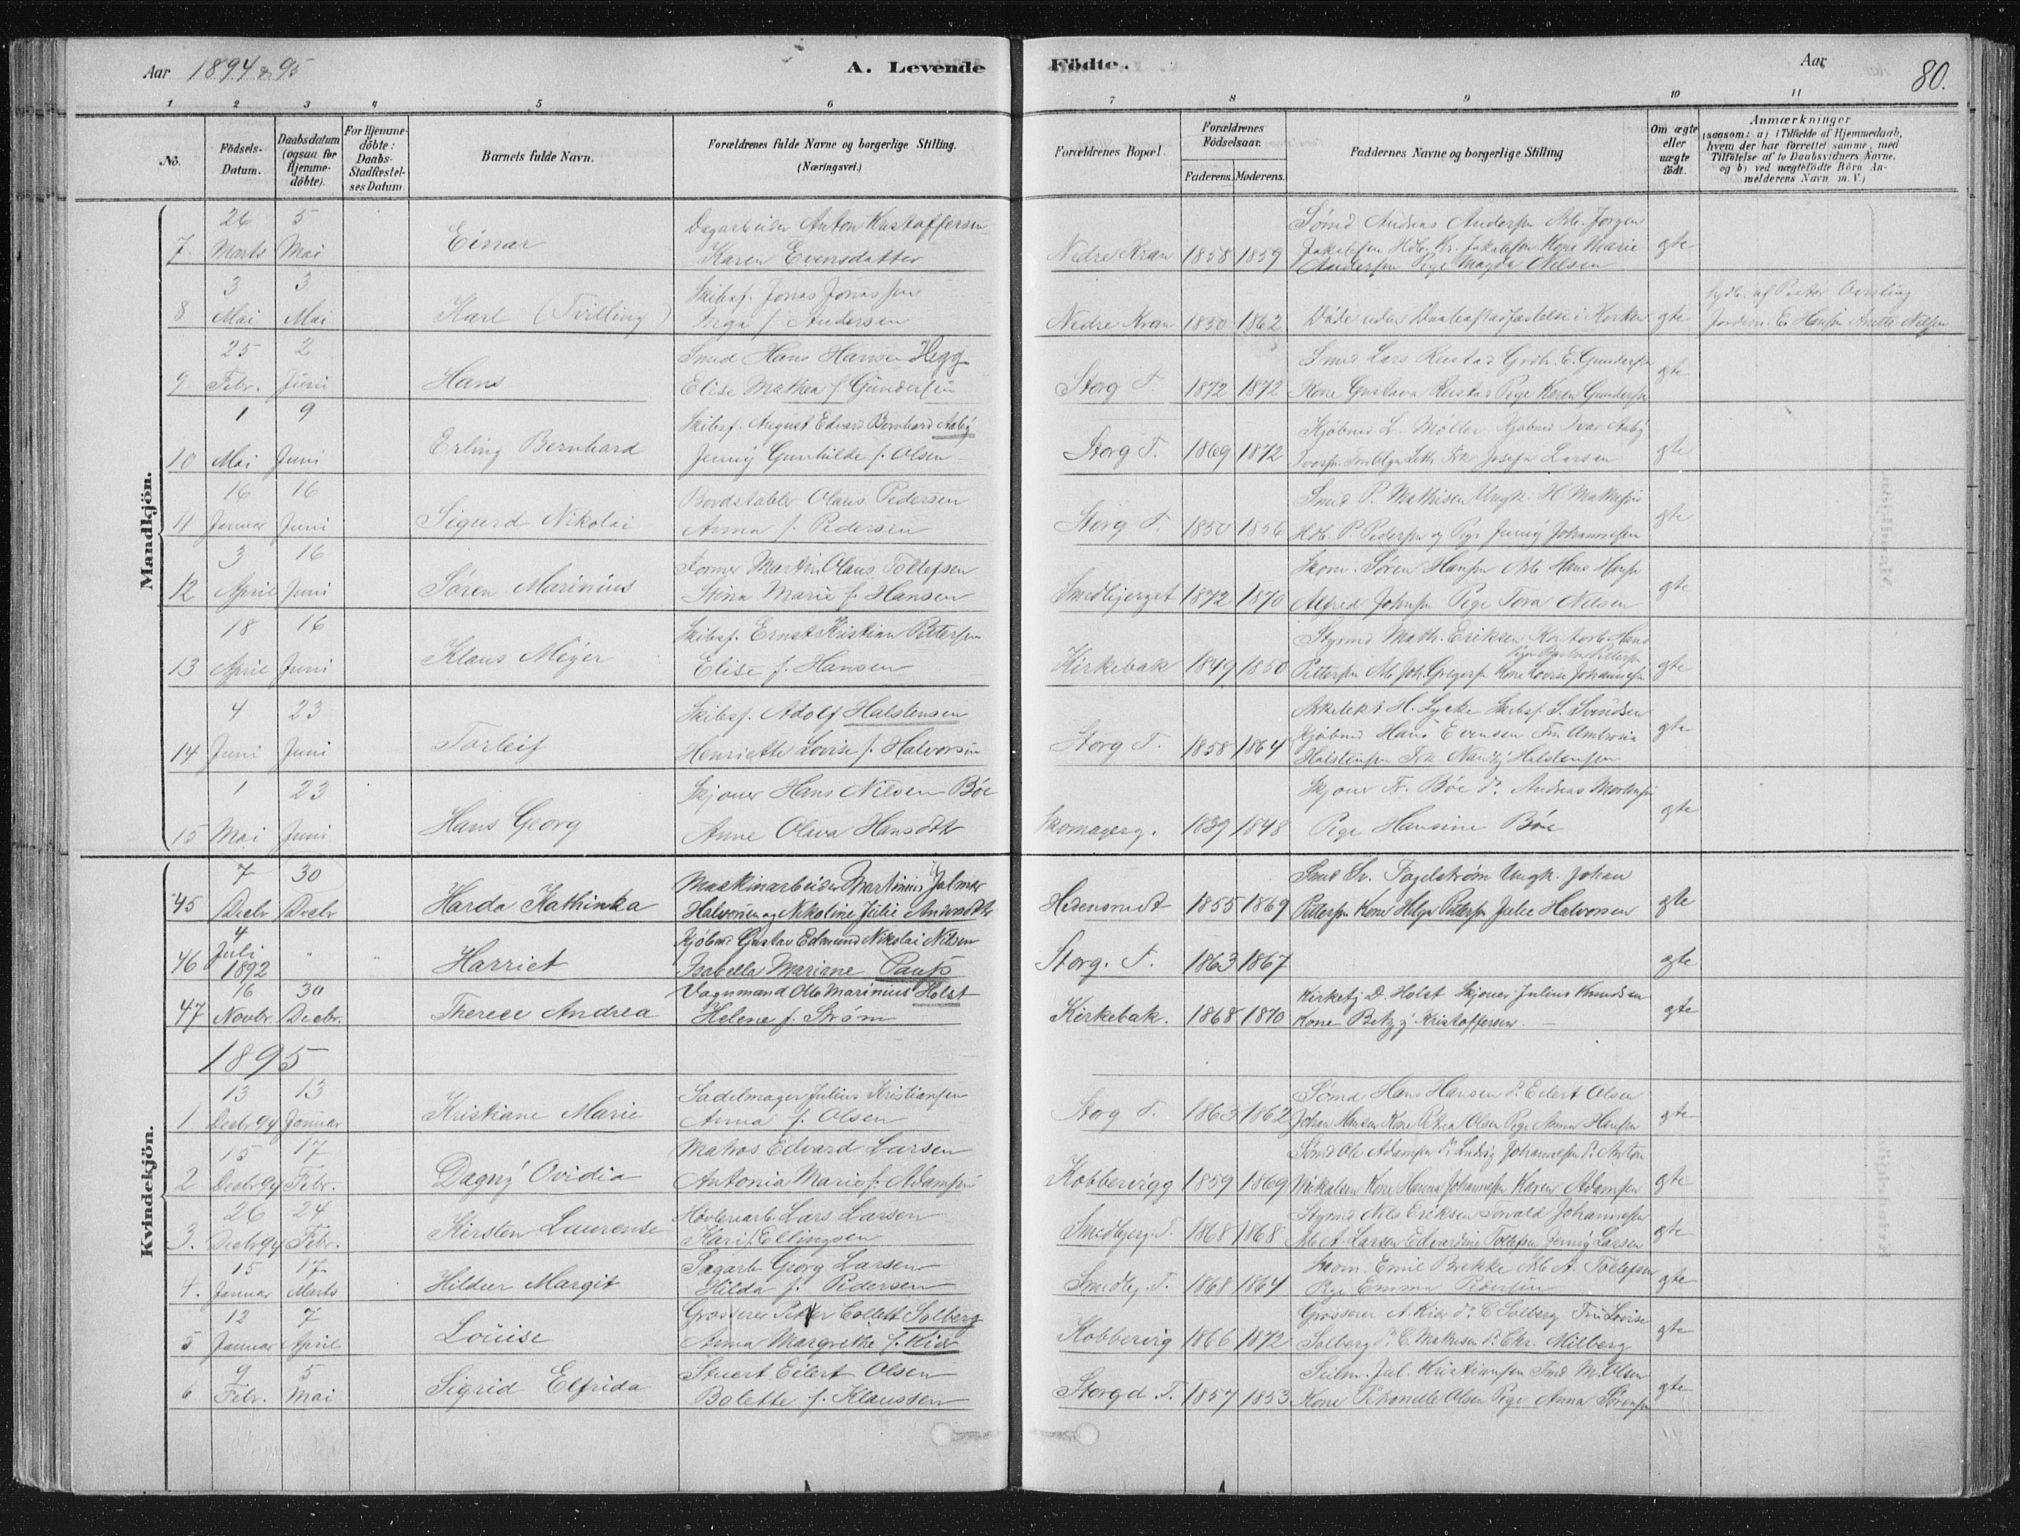 Aar 1894 & 95
A. Levende Födte.
Aar
80.
1 2 3 4 5 6 7 8 9 10 11
No.
Födsels-Datum.
Daabsdatum (ogsaa for Hjemme-döbte).
For Hjemme-döbte: Daabs-Stadfæstel-ses Datum.
Barnets fulde Navn.
Forældrenes fulde Navne og borgerlige Stilling. (Næringsvei.)
Forældrenes Bopæl.
Forældrenes Födselsaar.
Faderens. Moderens.
Faddernes Navne og borgerlige Stilling
Om ægte eller uægte födt.
Anmærkninger
(saasom: a) i Tilfælde af Hjemmedaab, hvem der har forrettet samme, med Tilföielse af to Daabsvidners Navne, og b) ved uægtefödte Börn An-melderens Navn m. V.)
Mandkjön.
7 26 Marts 5 Mai Einar
Dagarbeider Anton Kristoffersen
Karen Evensdatter
Nedre Kran 1858 1859
Sømd Andreas Andersen Arb. Jørgen
Jakobsen Kr. Jakobsen Kone Marie
Andersen Pige Magda Nilsen
gte
8 3 Mai 3 Mai Karl (Tvilling)
Skibsf. Jonas Jonassen
Inga f. Andersen
Nedre Kran 1850 1862
Døde uden Daabsstadfæstelse i Kirken
gte
Jordm. E. Hansen Anette Nilsen
9 25 Febr. 2 Juni Hans
Smed Hans Hansen Hegg
Elise Mathea f. Gundersen
Storg T. 1872 1872
Smed Lars Rustad E. Gundersen
Kone Gustava Rustad Pige Karen Gundersen
gte
10 1 Mai 9 Juni Erling Bernhard
Skibsf. August Edvard Bernhard Aaby
Jenny Gunhilde f. Olsen
Storg T. 1869 1872
Kjøbmd L. Møller Kjøbmd Ivar Aaby
Josefa Larsen
gte
11 16 Januar 16 Juni Sigurd Nikolai
Bordstabler Olaus Pedersen
Anna f. Pedersen
Storg T. 1850 1856
Smed P. Mathisen Ungk. H Mathisen
P. Pedersen og Pige Jenny Johannesen
gte
12 3 April 16 Juni Søren Marinius
Former Martin Olaus Tollefsen
Stina Marie f. Hansen
Smedbjerget 1872 1870
Skom. Søren Hansen Arb Hans Hansen
Alfred Johnsen Pige Tora Nilsen
gte
13 18 April 16 Juni Klaus Meyer
Skibsf. Ernst Kristian Pettersen
Elise f. Hansen
Kirkebak 1849 1850
Styrmd Math. Eriksen Kontorb Hans
Pettersen Arb Joh. Gregersen Kone Lovise Johannesen
gte
14 4 Juni 23 Juni Torleif
Skibsf. Adolf Halstensen
Henriette Lovise f. Halvorsen
Storg T. 1858 1864
Arkitekt H. Lycke Skibsf. S. Svendsen
Kjøbmd Hans Evensen Fru Ambrosia
Halstensen Frk Nanny Halstensen
gte
15 1 Mai 23 Juni Hans Georg
Skjouer Hans Nilsen Bøe
Anne Oliva Hansdtr
Skomagerg. 1839 1848
Skjouer Fr. Bøe do Andreas Mortensen
Pige Hansine Bøe
gte
Kvindekjön.
45 7 Decbr 30 Decbr Harda Kathinka
Maskinarbeider Martinius Jalmar
Halvorsen og Nikoline Julie Amundsdtr
Hedensmdt 1855 1869
Smd Sv. Fagelstrøm Ungk. Johan
Pettersen Kone Helga Pettersen Julie Halvorsen
gte
46 4 Juli 1892 " " Harriet
Kjøbmd Gustav Edmund Nikolai Nilsen
Isabella Mariane Paus
Storg. T. 1863 1867
gte
47 16 Novbr. 30 Decbr. Therece Andrea
Vognmand Otto Marinius Holst
Helene f. Strøm
Kirkebak. 1868 1870
Kirketj D. Holst Skjouer Julius Knudsen
Kone Betzy Kristoffersen
gte
1895
1 13 Decbr 94 13 Januar Kristiane Marie
Sadelmager Julius Kristiansen
Anna f. Olsen
Storg T. 1863 1862
Sømd Hans Hansen do Eilert Olsen
Johan Hansen Kone Petrea Olsen Pige Anna Hansen
gte
2 15 Decbr 94 17 Febr. Dagny Ovidia
Matros Edvard Larsen
Antonia Marie f. Adamsen
Kobbervigg 1859 1869
Sømd Ole Adamsen do Ludvig Johannesen do Anton
Mikalsen Kone Hanna Johannesen Karen Adamsen
gte
3. 26 Decbr 94 24 Febr. Kirsten Laurense
Høvleriarb. Lars Larsen
Kari f. Ellingsen
Smedbjerg. T. 1868 1868
Styrmd Nils Eriksen Torvald Johannesen
Arb A. Larsen Edvardine Tollefsen Jenny Larsen
gte
4. 15 Januar 17 Marts Hildur Margit
Sagarb Georg Larsen
Hilda f. Pedersen
Smedbj. T. 1868 1864
Skom. Emil Brekke Arb A. Tollefsen
Pige Emma Pedersen
gte
5 12 Januar 7 April Louise
Grosserer Peter Collett Solberg
Anna Margrethe f. Kiær
Kobbervig 1866 1872
Grosserer A. Kiær do C. Solberg Fru Lovise
Solberg do C. Mathisen do Chr. Milberg
gte
6 9 Febr. 5 Mai Sigrid Elfrida
Stuert Eilert Olsen
Bolette f. Klaussen
Storgd T. 1857 1853
Seilm. Jul. Kristiansen Smd M. Olsen
Kone Petronelle Olsen Pige Anna Sørensen
gte